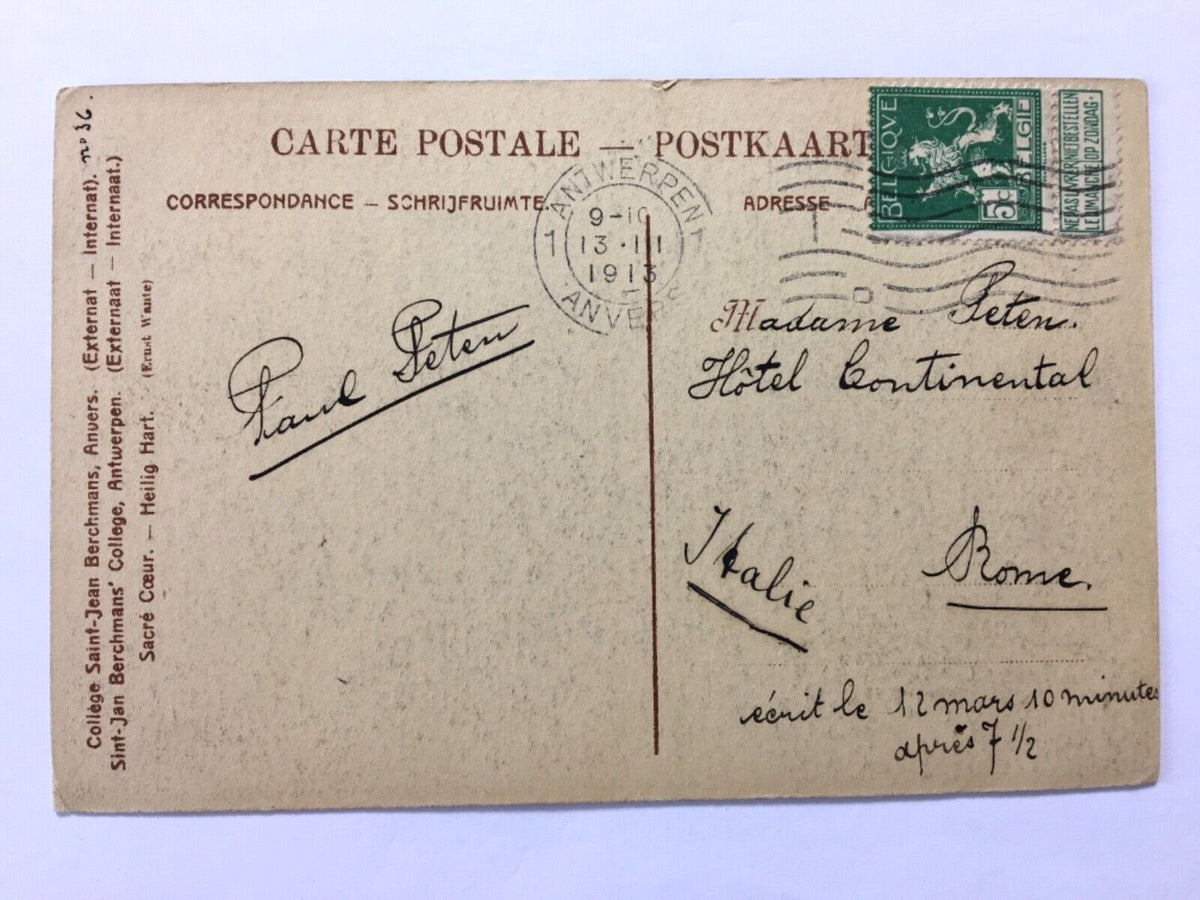 CARTE POSTALE — POSTKAART
CORRESPONDANCE — SCHRIJFRUIMTE
ADRESSE
ANTWERPEN 1
1
9-10
13·III
1913
ANVERS
BELGIQVE
BELGIË
5c
NE PAS LIVRER
NIET BESTELLEN
LE DIMANCHE
OP ZONDAG.
Paul Peten
Madame Peten.
Hôtel Continental
Rome.
Italie
écrit le 12 mars 10 minutes
après 7 1/2
Collège Saint-Jean Berchmans, Anvers. (Externat — Internat). nº 36.
Sint-Jan Berchmans' College, Antwerpen. (Externaat — Internaat.)
Sacré Cœur. — Heilig Hart. (Ernst Wante)